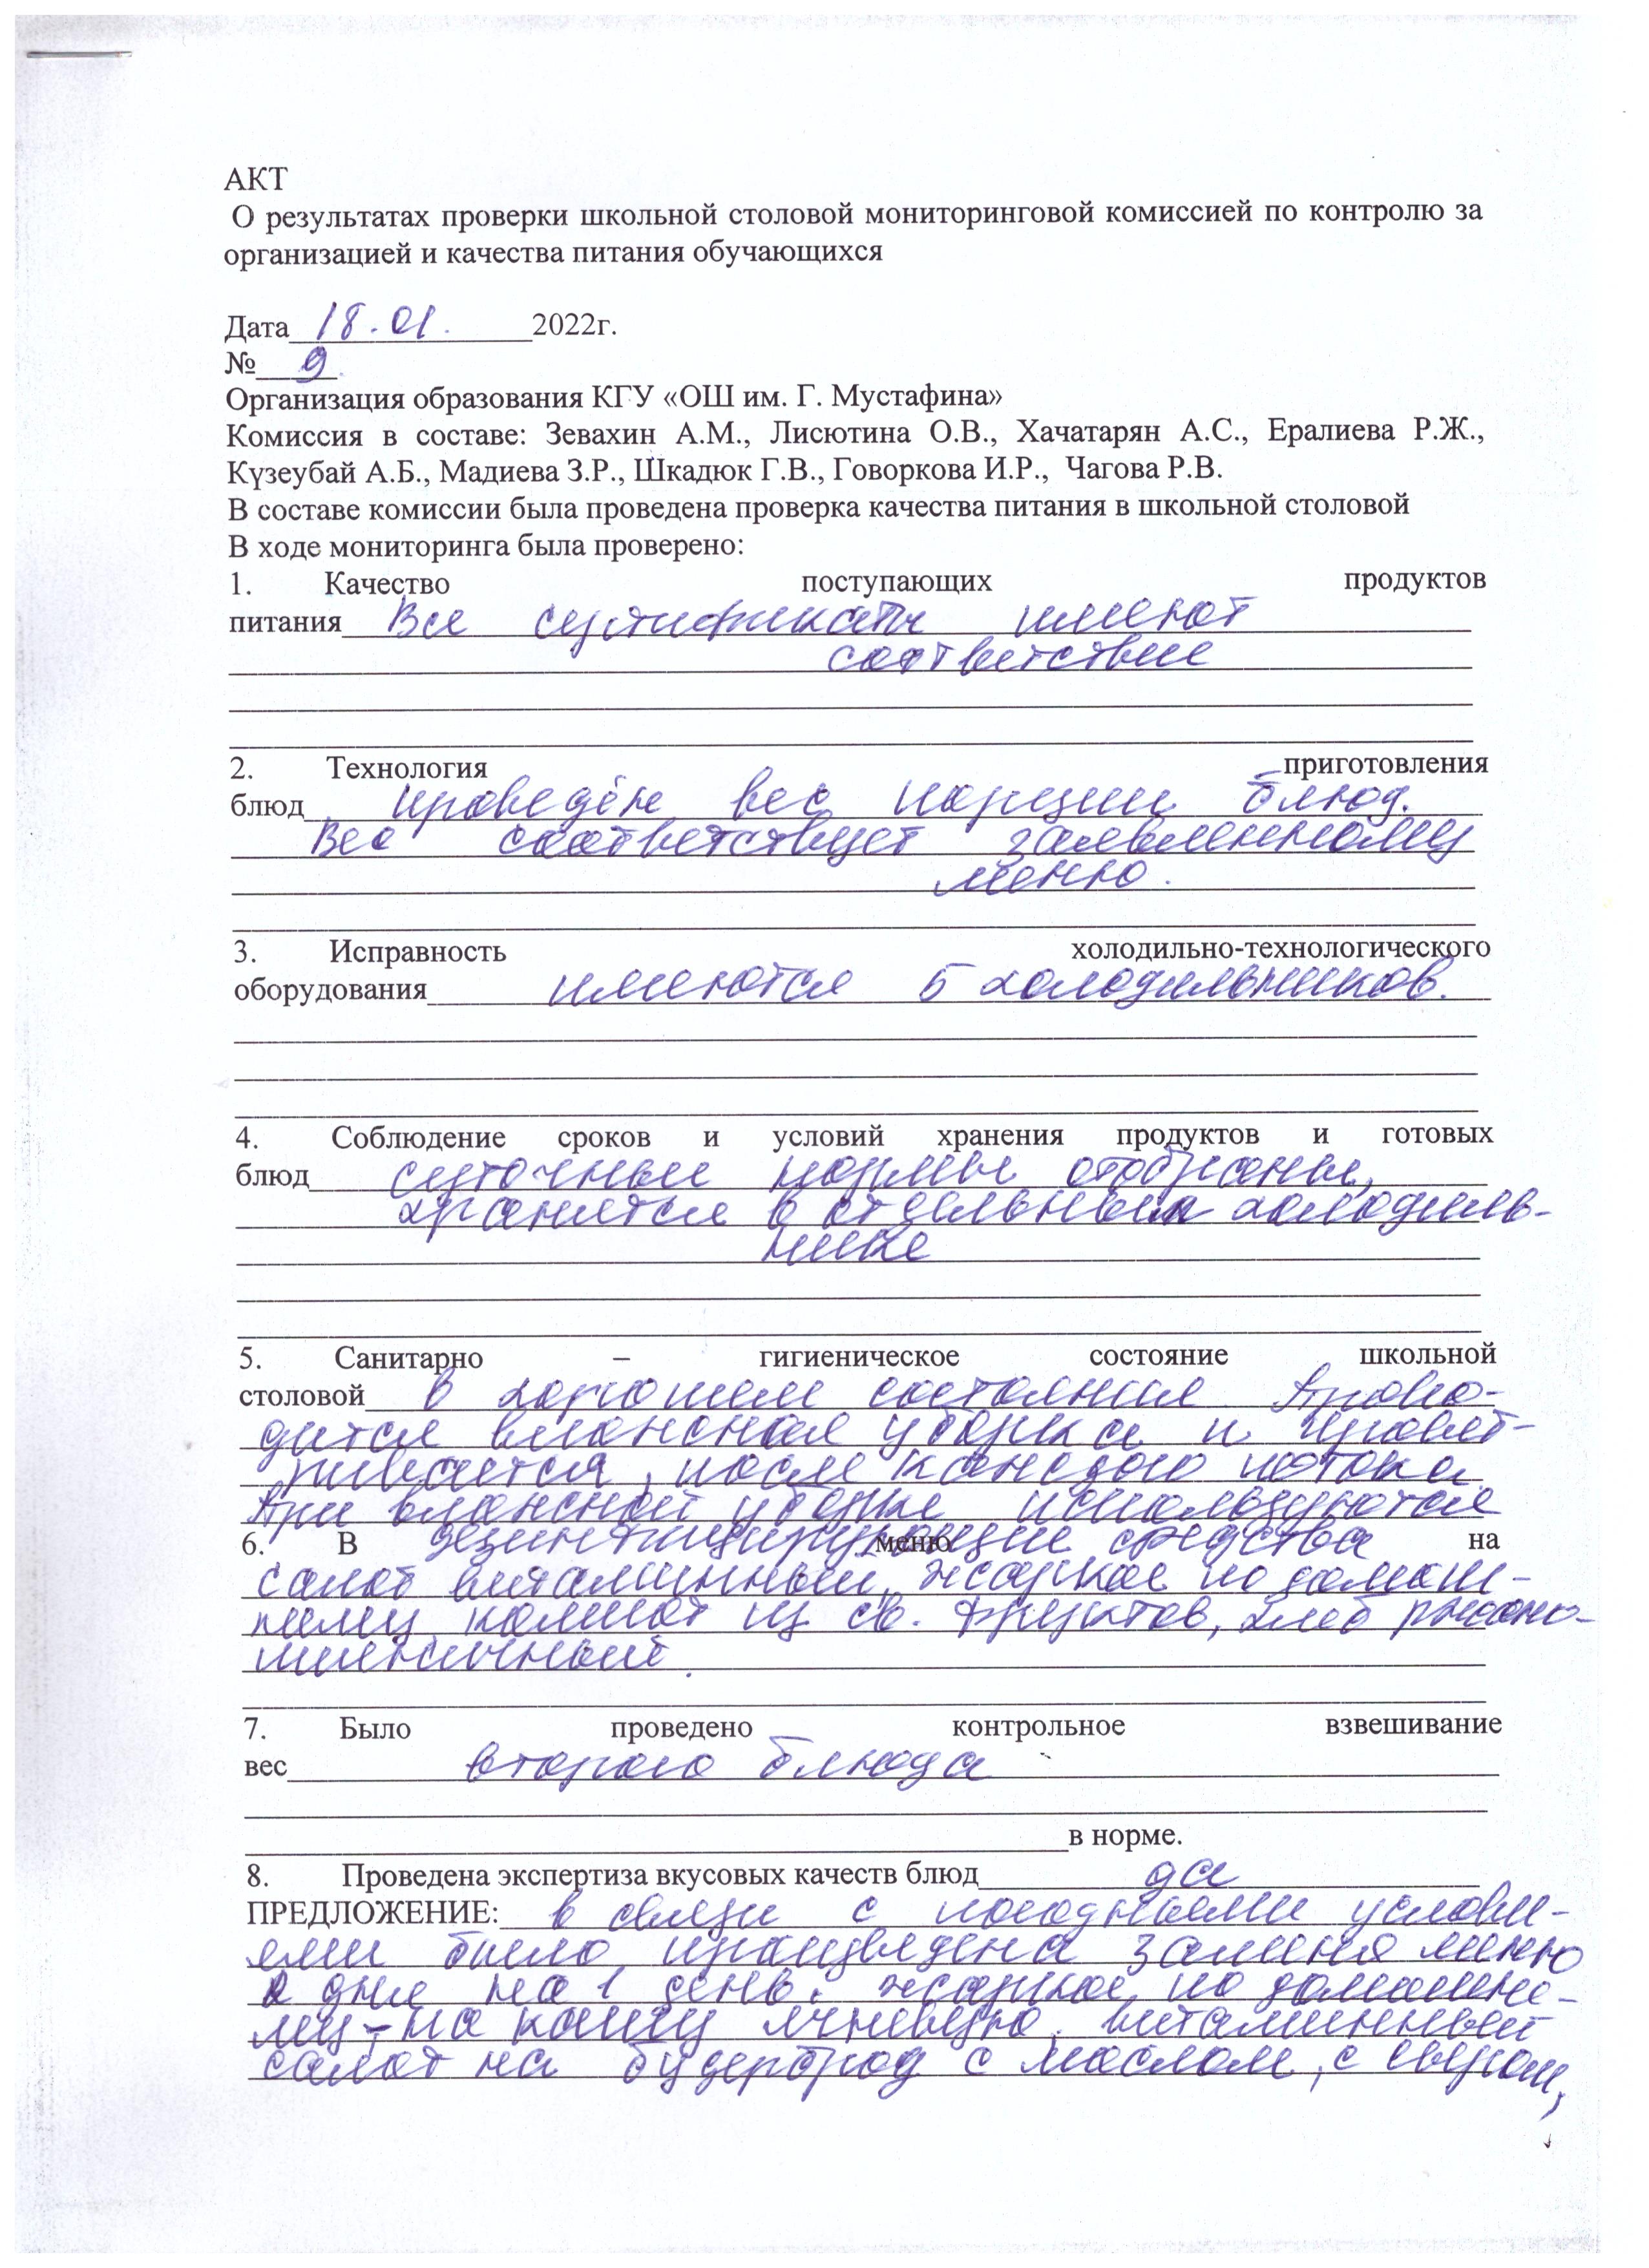 АКТ
О результатах проверки школьной столовой мониторинговой комиссией по контролю за
организацией и качества питания обучающихся
Дата 18.01. 2022г.
№ 9
Организация образования КГУ «ОШ им. Г. Мустафина»
Комиссия в составе: Зевахин А.М., Лисютина О.В., Хачатарян А.С., Ералиева Р.Ж.,
Күзеубай А.Б., Мадиева З.Р., Шкадюк Г.В., Говоркова И.Р., Чагова Р.В.
В составе комиссии была проведена проверка качества питания в школьной столовой
В ходе мониторинга была проверено:
1. Качество поступающих продуктов
питания Все сертификаты имеют
соответствие
2. Технология приготовления
блюд проведён вес порции блюд.
Вес соответствует заявленному
меню.
3. Исправность холодильно-технологического
оборудования имеются 5 холодильников.
4. Соблюдение сроков и условий хранения продуктов и готовых
блюд суточные нормы отобраны,
хранятся в отдельных холодиль-
нике
5. Санитарно – гигиеническое состояние школьной
столовой в хорошем состоянии прово-
дится влажная уборка и провет-
ривается, после каждого потока.
При влажной уборке используются
дезинфицирующие средства
6. В меню на
салат витаминный, жаркое по домаш-
нему компот из св. фруктов, хлеб ржано-
пшеничный.
7. Было проведено контрольное взвешивание
вес второго блюда
в норме.
8. Проведена экспертиза вкусовых качеств блюд да
ПРЕДЛОЖЕНИЕ: в связи с погодными услови-
ями было произведена замена меню
2 дня на 1 день. жаркое по домашне-
му - на кашу ячневую, витаминный
салат на будерброд с маслом, с сыром,